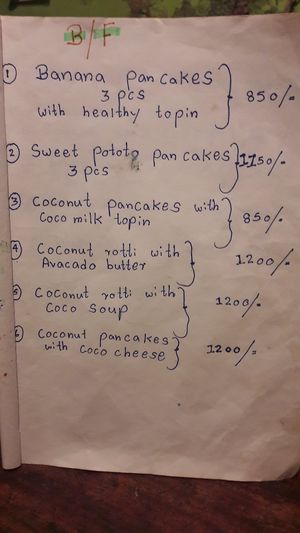 B/F
① Banana pancakes
3 pcs
with healthy topin } 850/-
② Sweet pototo pancakes } 1150/-
3 pcs
③ Coconut pancakes with
Coco milk topin } 850/-
④ Coconut rotti with
Avacado butter } 1200/-
⑤ Coconut rotti with
Coco soup } 1200/-
⑥ Coconut pancakes
with Coco cheese } 1200/-